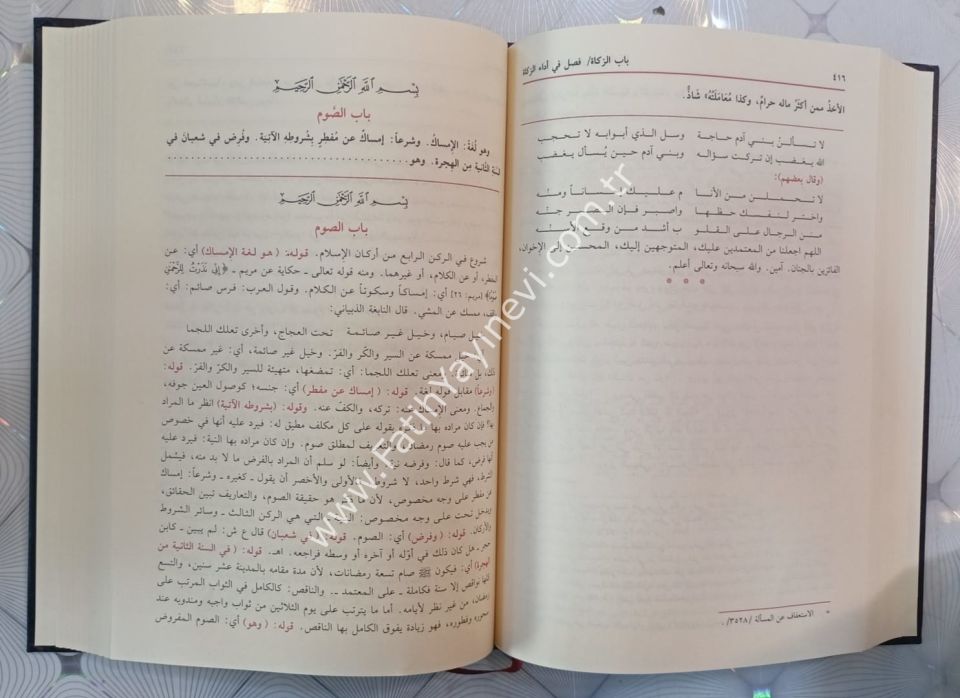 ٤١٦
باب الزكاة/ فصل في أداء الزكاة
الأخذُ ممن أكثَرُ ماله حرامٌ، وكذا مُعَامَلَتُهُ، شَاذٌّ.
لا تسألنّ بني آدم حاجة وسل الذي أبوابه لا تحجب
الله يغضب إن تركت سؤاله وبني آدم حين يُسأل يغضب
(وقال بعضهم):
لا تحملن من الأنا م عليك إحساناً ومنّه
واختر لنفسك حظها واصبر فإن الصبر جنّه
منن الرجال على القلو ب أشد من وقع الأسنه
اللهم اجعلنا من المعتمدين عليك، المتوجهين إليك، المحسنين إلى الإخوان،
الفائزين بالجنان. آمين. والله سبحانه وتعالى أعلم.
* * *
* الاستعفاف عن المسألة /٣٥٢٨/ .
بِسْمِ اللَّهِ الرَّحْمَٰنِ الرَّحِيمِ
باب الصَّوم
وهو لُغَةً: الإمساكُ. وشرعاً: إمساكٌ عن مُفطِرٍ بِشُروطِه الآتية. وفُرِض في شعبانَ في
السنة الثَّانية مِن الهِجرة. وهو
بِسْمِ اللَّهِ الرَّحْمَٰنِ الرَّحِيمِ
باب الصوم
شروع في الركن الرابع من أركان الإسلام. قوله: (هو لغة الإمساك) أي: عن
الفطر، أو عن الكلام، أو غيرهما. ومنه قوله تعالى ـ حكاية عن مريم ـ ﴿إِنِّي نَذَرْتُ لِلرَّحْمَٰنِ
صَوْمًا﴾ [مريم: ٢٦] أي: إمساكاً وسكوتاً عن الكلام. وقول العرب: فرس صائم: أي:
واقف، ممسك عن المشي. قال النابغة الذبياني:
خيل صيام، وخيل غير صائمة تحت العجاج، وأخرى تعلك اللجما
خيل ممسكة عن السير والكَر والفَرّ. وخيل غير صائمة، أي: غير ممسكة عن
ذلك، بل معنى تعلك اللجما: أي: تمضغها، متهيئة للسير والكرّ والفرّ. قوله:
(وشرعاً) مقابل قوله لغة. قوله: (إمساك عن مفطر) أي: جنسه؛ كوصول العين جوفه،
والجماع. ومعنى الإمساك عنه: تركه، والكف عنه. وقوله: (بشروطه الآتية) انظر ما المراد
بها؟ فإن كان مراده بها بقوله على كل مكلف مطبق له: فيرد عليه أنها في خصوص
من يجب عليه صوم رمضان، والتعريف لمطلق صوم. وإن كان مراده بها النية: فيرد عليه
أنها فرض، كما قال: وفرضه نية. وأيضاً: لو سلم أن المراد بالفرض ما لا بد منه، فيشمل
الشرط، فهي شرط واحد، لا شروط. والأولى والأخصر أن يقول ـ كغيره ـ وشرعاً: إمساك
عن مفطر على وجه مخصوص، لأن ما ذكر هو حقيقة الصوم، والتعاريف تبين الحقائق،
ويدخل تحت على وجه مخصوص: النية التي هي الركن الثالث ـ وسائر الشروط
والأركان. قوله: (وفرض) أي: الصوم. قوله: (في شعبان) قال ع ش: لم يبين ـ كابن
حجر ـ هل كان ذلك في أوّله أو آخره أو وسطه فراجعه. اهـ. قوله: (في السنة الثانية من
الهجرة) أي: فيكون ﷺ صام تسعة رمضانات، لأن مدة مقامه بالمدينة عشر سنين، والتسع
كلها نواقص إلا سنة فكاملة ـ على المعتمد ـ. والناقص: كالكامل في الثواب المرتب على
رمضان، من غير نظر لأيامه. أما ما يترتب على يوم الثلاثين من ثواب واجبه ومندوبه عند
سحوره وفطوره، فهو زيادة يفوق الكامل بها الناقص. قوله: (وهو) أي: الصوم المفروض
www.FatihYayinevi.com.tr